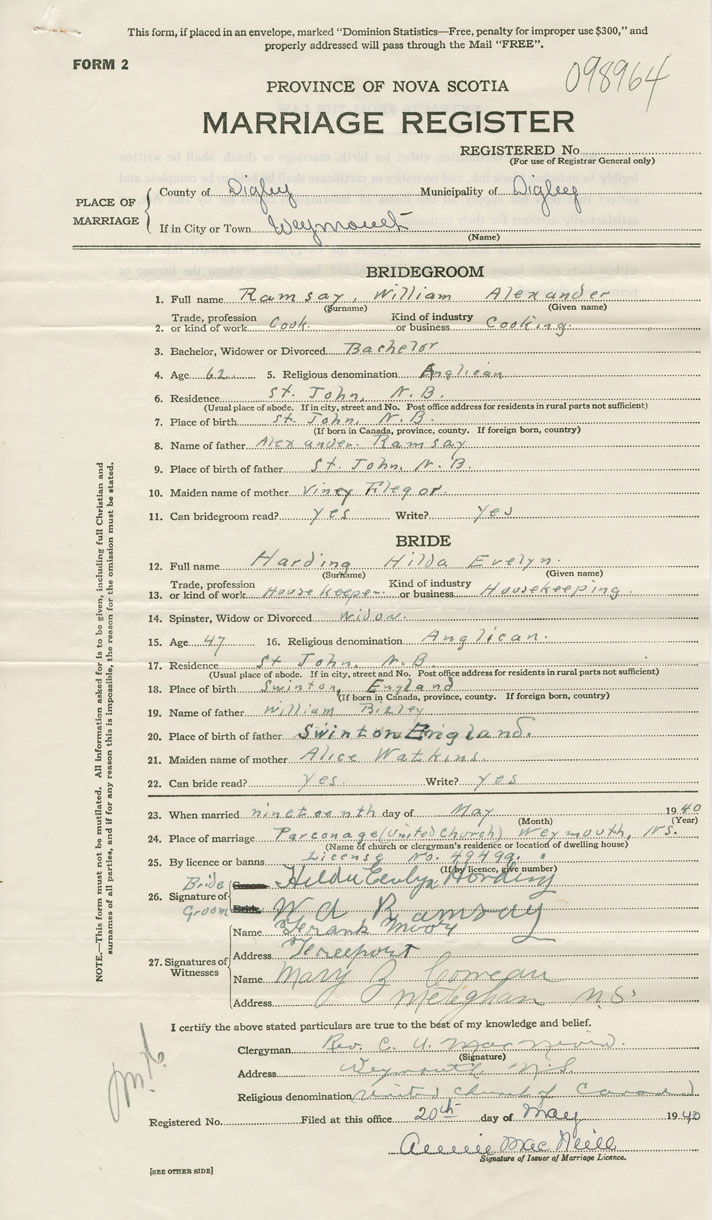 This form, if placed in an envelope, marked “Dominion Statistics—Free, penalty for improper use $300,” and
properly addressed will pass through the Mail “FREE”.
FORM 2
098964
PROVINCE OF NOVA SCOTIA
MARRIAGE REGISTER
REGISTERED No
(For use of Registrar General only)
PLACE OF MARRIAGE
County of Digby Municipality of Digby
If in City or Town Weymouth
(Name)
BRIDEGROOM
1. Full name Ramsay, William Alexander
(Surname) (Given name)
2. Trade, profession or kind of work Cook. Kind of industry or business Cooking.
3. Bachelor, Widower or Divorced Bachelor
4. Age 62 5. Religious denomination Anglican
6. Residence St. John, N.B.
(Usual place of abode. If in city, street and No. Post office address for residents in rural parts not sufficient)
7. Place of birth St. John, N.B.
(If born in Canada, province, county. If foreign born, country)
8. Name of father Alexander Ramsay
9. Place of birth of father St. John, N.B.
10. Maiden name of mother Viney Flegor.
11. Can bridegroom read? Yes Write? Yes
BRIDE
12. Full name Harding Hilda Evelyn.
(Surname) (Given name)
13. Trade, profession or kind of work Housekeeper. Kind of industry or business Housekeeping.
14. Spinster, Widow or Divorced Widow.
15. Age 47 16. Religious denomination Anglican.
17. Residence St John, N.B.
(Usual place of abode. If in city, street and No. Post office address for residents in rural parts not sufficient)
18. Place of birth Swinton, England
(If born in Canada, province, county. If foreign born, country)
19. Name of father William
20. Place of birth of father Swinton England.
21. Maiden name of mother Alice Watkins.
22. Can bride read? Yes. Write? Yes
23. When married nineteenth day of May 1940
(Month) (Year)
24. Place of marriage Parconage (United Church) Weymouth, N.S.
(Name of church or clergyman's residence or location of dwelling house)
25. By licence or banns License No. 49499.
(If by licence, give number)
26. Signature of
Bride Hilda Evelyn Harding
Groom W A Ramsay
27. Signatures of Witnesses
Name Frank
Address Freeport
Name Mary Z Comeau
Address Meteghan N.S.
I certify the above stated particulars are true to the best of my knowledge and belief.
Clergyman Rev. C. A. MacNevin.
(Signature)
Address Weymouth N.S.
Religious denomination United Church of Canada
Registered No. Filed at this office 20th day of May 1940
Annie MacNeill
Signature of Issuer of Marriage Licence.
[SEE OTHER SIDE]
NOTE.—This form must not be mutilated. All information asked for is to be given, including full Christian and
surnames of all parties, and if for any reason this is impossible, the reason for the omission must be stated.